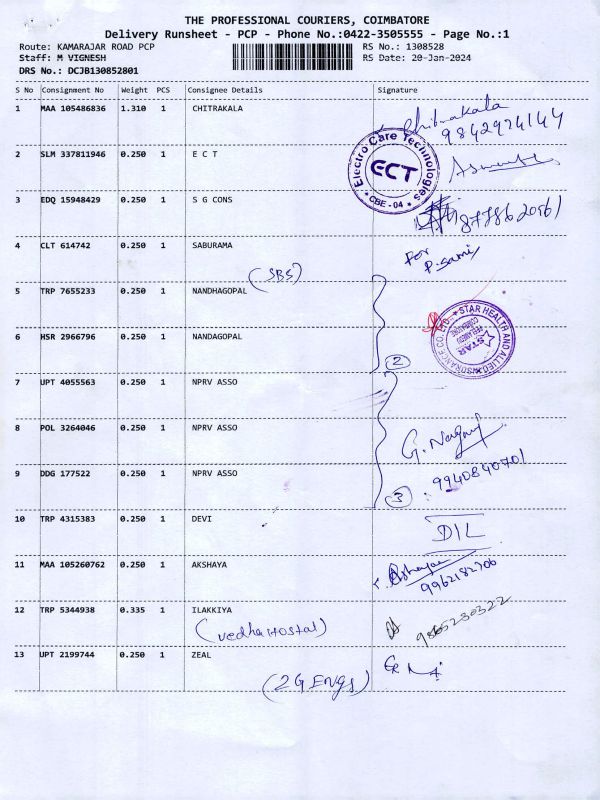 THE PROFESSIONAL COURIERS, COIMBATORE
Delivery Runsheet - PCP - Phone No.:0422-3505555 - Page No.:1
Route: KAMARAJAR ROAD PCP
RS No.: 1308528
Staff: M VIGNESH
RS Date: 20-Jan-2024
DRS No.: DCJB130852801
S No Consignment No Weight PCS Consignee Details Signature
1 MAA 105486836 1.310 1 CHITRAKALA Chitrakala
9842974144
2 SLM 337811946 0.250 1 E C T
Electro Care Technologies
ECT
* CBE - 04 *
3 EDQ 15948429 0.250 1 S G CONS
4 CLT 614742 0.250 1 SABURAMA For
P. Sami
(SBS)
5 TRP 7655233 0.250 1 NANDHAGOPAL
STAR HEALTH AND ALLIED INSURANCE CO. LTD.
STAR
COIMBATORE
6 HSR 2966796 0.250 1 NANDAGOPAL
2
7 UPT 4055563 0.250 1 NPRV ASSO
8 POL 3264046 0.250 1 NPRV ASSO G. Nagaraj
9 DDG 177522 0.250 1 NPRV ASSO 9940840701
3
10 TRP 4315383 0.250 1 DEVI DIL
11 MAA 105260762 0.250 1 AKSHAYA Akshayaa
9962182706
12 TRP 5344938 0.335 1 ILAKKIYA 9865230322
(Vedha Hostal)
13 UPT 2199744 0.250 1 ZEAL
(2 G Engs)